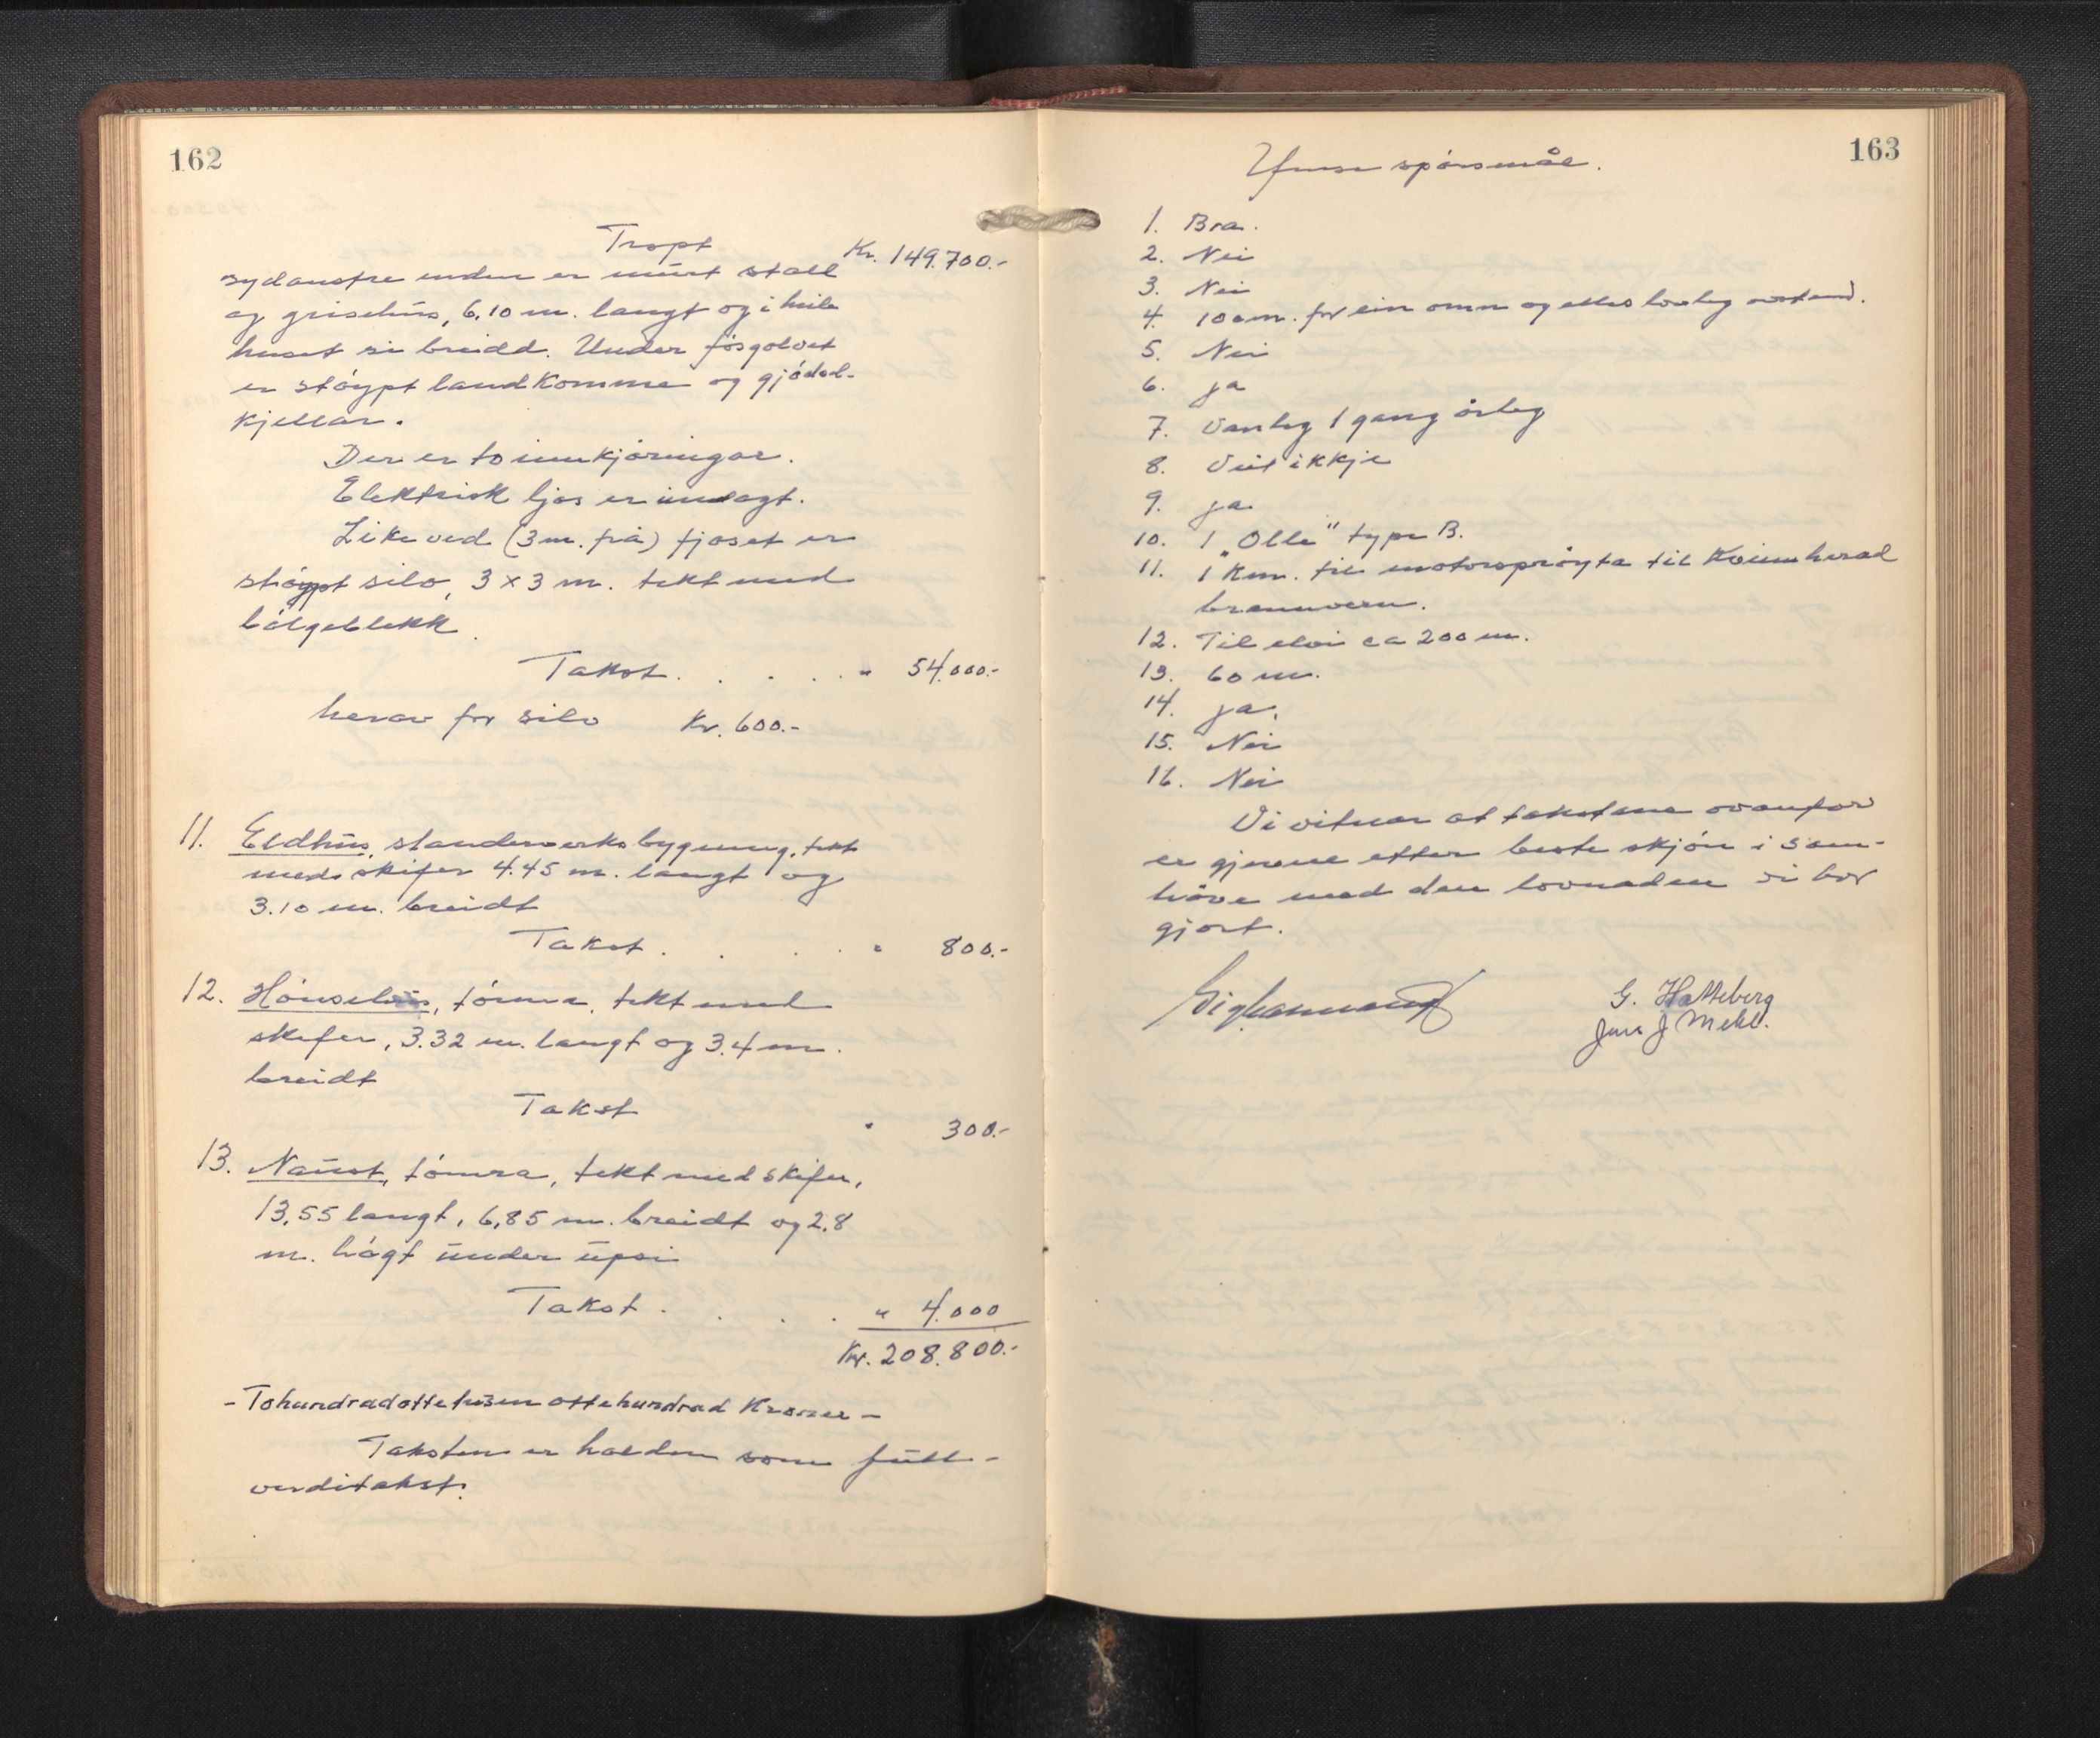 162
Trspt Kr. 149.700.-
sydaustre enden er murt stall
og grisehus, 6,10 m. langt og i heile
huset si breidd. Under fjosgolvet
er stöypt landkomme og gjödsel-
kjellar.
Der er to innkjöringar.
Elektrisk ljos er innlagt.
Like ved (3 m. frå) fjoset er
stöypt silo, 3 x 3 m. tekt med
bölgeblekk.
Takst. . . . . " 54.000.-
herav for silo Kr. 600.-
11. Eldhus, standerverks bygning, tekt
med skifer 4.45 m. langt og
3.10 m. breidt
Takst . . . . " 800.-
12. Hönsehus, tömra, tekt med
skifer, 3.32 m. langt og 3.4 m.
breidt
Takst " 300.-
13. Naust, tömra, tekt med skifer,
13,55 langt, 6,85 m. breidt og 2.8
m. högt under upsi
Takst . . . . " 4.000
Kr. 208.800.-
- Tohundradottetusen ottehundrad Kroner -
Taksten er halden som full-
verditakst.
163
Ymse spörsmål.
1. Bra.
2. Nei
3. Nei
4. 100 m. for ein omn og elles lovleg avstand.
5. Nei
6. ja
7. Vanleg 1 gang årleg
8. Veit ikkje
9. ja
10. 1 "Olle" type B.
11. 1 km. til motorspröyta til Kvinnherad
brannvern.
12. Til elvi ca 200 m.
13. 60 m.
14. ja.
15. Nei
16. Nei
Vi vitnar at takstane ovanfor
er gjevne etter beste skjön i sam-
höve med den lovnaden vi har
gjort.
G. Hatteberg
Jens J Mehl.